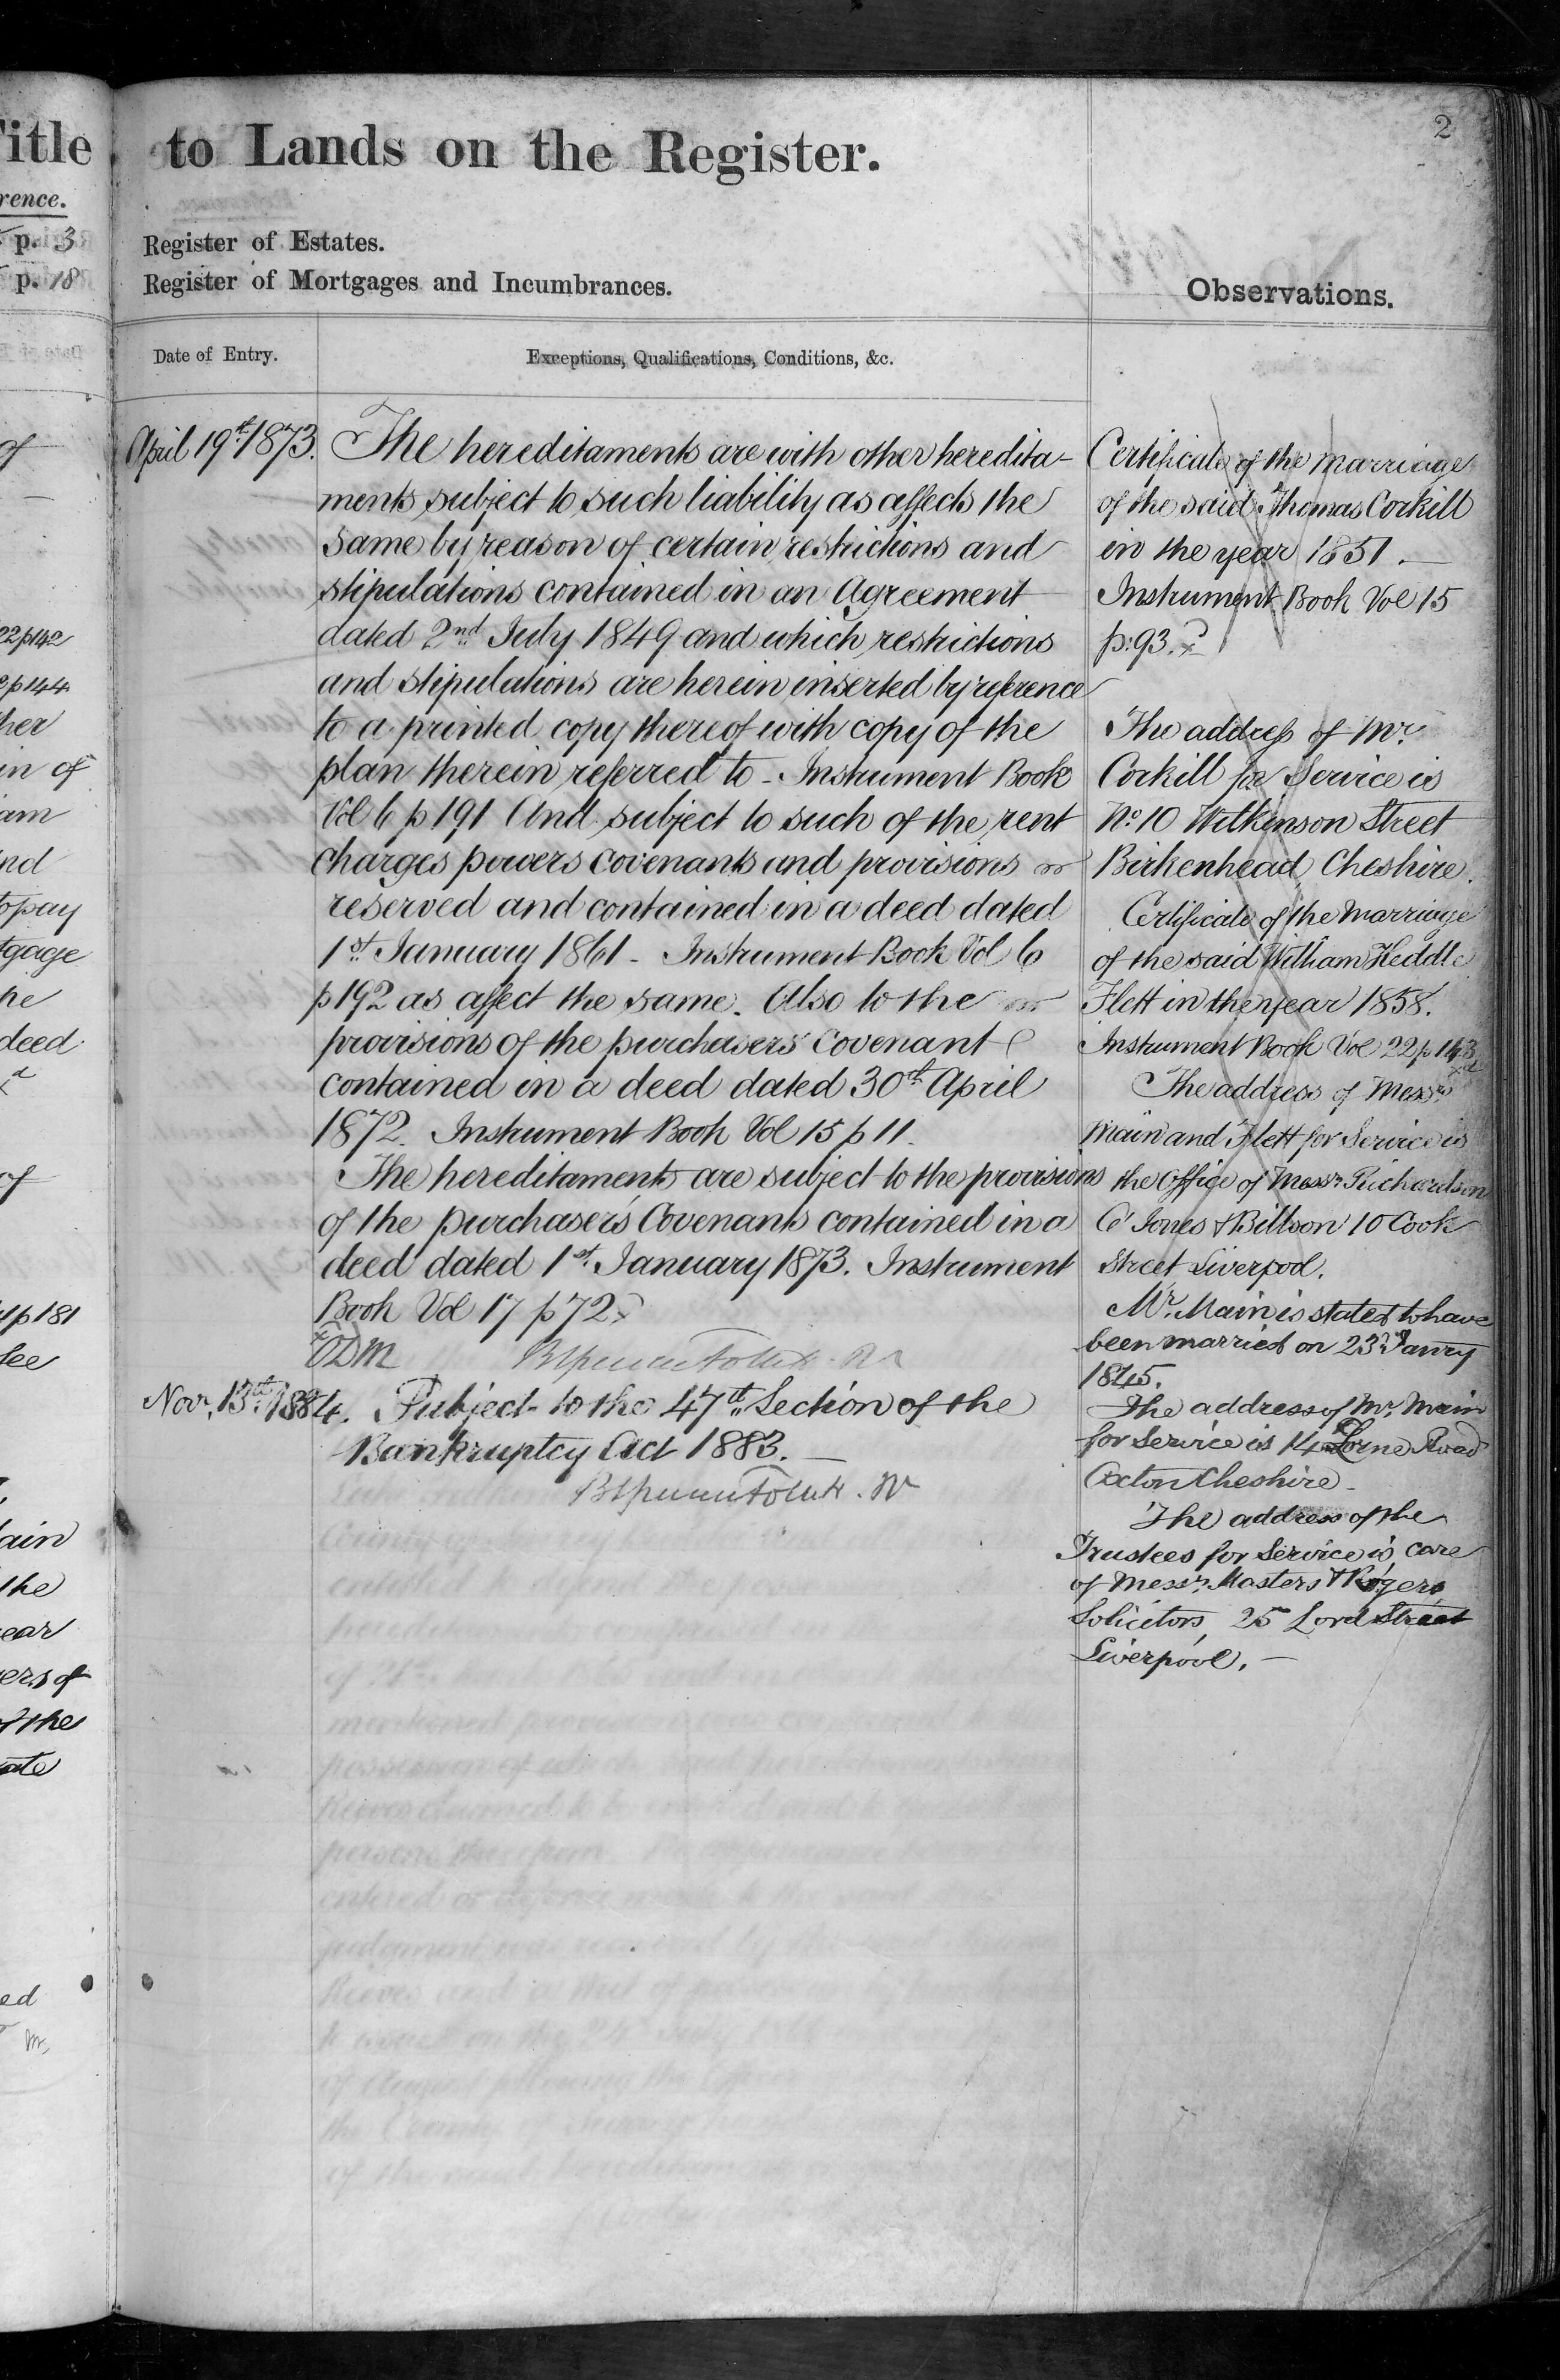 to Lands on the Register.
2
Register of Estates.
Register of Mortgages and Incumbrances.
Observations.
Date of Entry.
Exceptions, Qualifications, Conditions, &c.
April 19th 1873.
The hereditaments are with other heredita-
ments subject to such liability as affects the
same by reason of certain restrictions and
stipulations contained in an Agreement
dated 2nd July 1849 and which restrictions
and stipulations are herein inserted by reference
to a printed copy thereof with copy of the
plan therein referred to - Instrument Book
Vol 6 p 191 And subject to such of the rent
charges powers covenants and provisions
reserved and contained in a deed dated
1st January 1861 - Instrument Book Vol 6
p 192 as affect the same. Also to the
provisions of the purchasers' covenant
contained in a deed dated 30th April
1872. Instrument Book Vol 15 p 11.
The hereditaments are subject to the provisions
of the purchaser's Covenants contained in a
deed dated 1st January 1873. Instrument
Book Vol 17 p 72
Nov. 13th 1884.
Subject to the 47th Section of the
Bankruptcy Act 1883.
Certificate of the marriage
of the said Thomas Corkill
in the year 1851.
Instrument Book Vol 15
p: 93.
The address of Mr.
Corkill for Service is
No. 10 Wilkinson Street
Birkenhead, Cheshire.
Certificate of the marriage
of the said William Heddle
Flett in the year 1858.
Instrument Book Vol 22 p 143
The address of Messrs
Main and Flett for Service is
the Office of Messrs Richardson
Jones & Billson 10 Cook
Street Liverpool.
Mr. Main is stated to have
been married on 23rd Janry
1845.
The address of Mr. Main
for Service is 14 Lorne Road
Oxton Cheshire.
The address of the
Trustees for Service is, care
of Messrs. Masters & Rogers
Solicitors, 25 Lord Street
Liverpool.
Title
rence.
p. 3
p. 18
of
22 p 142
p 144
her
in of
iam
nd
to pay
tgage
he
deed
of
p 181
See
ain
the
ear
ers of
of the
ate
ed